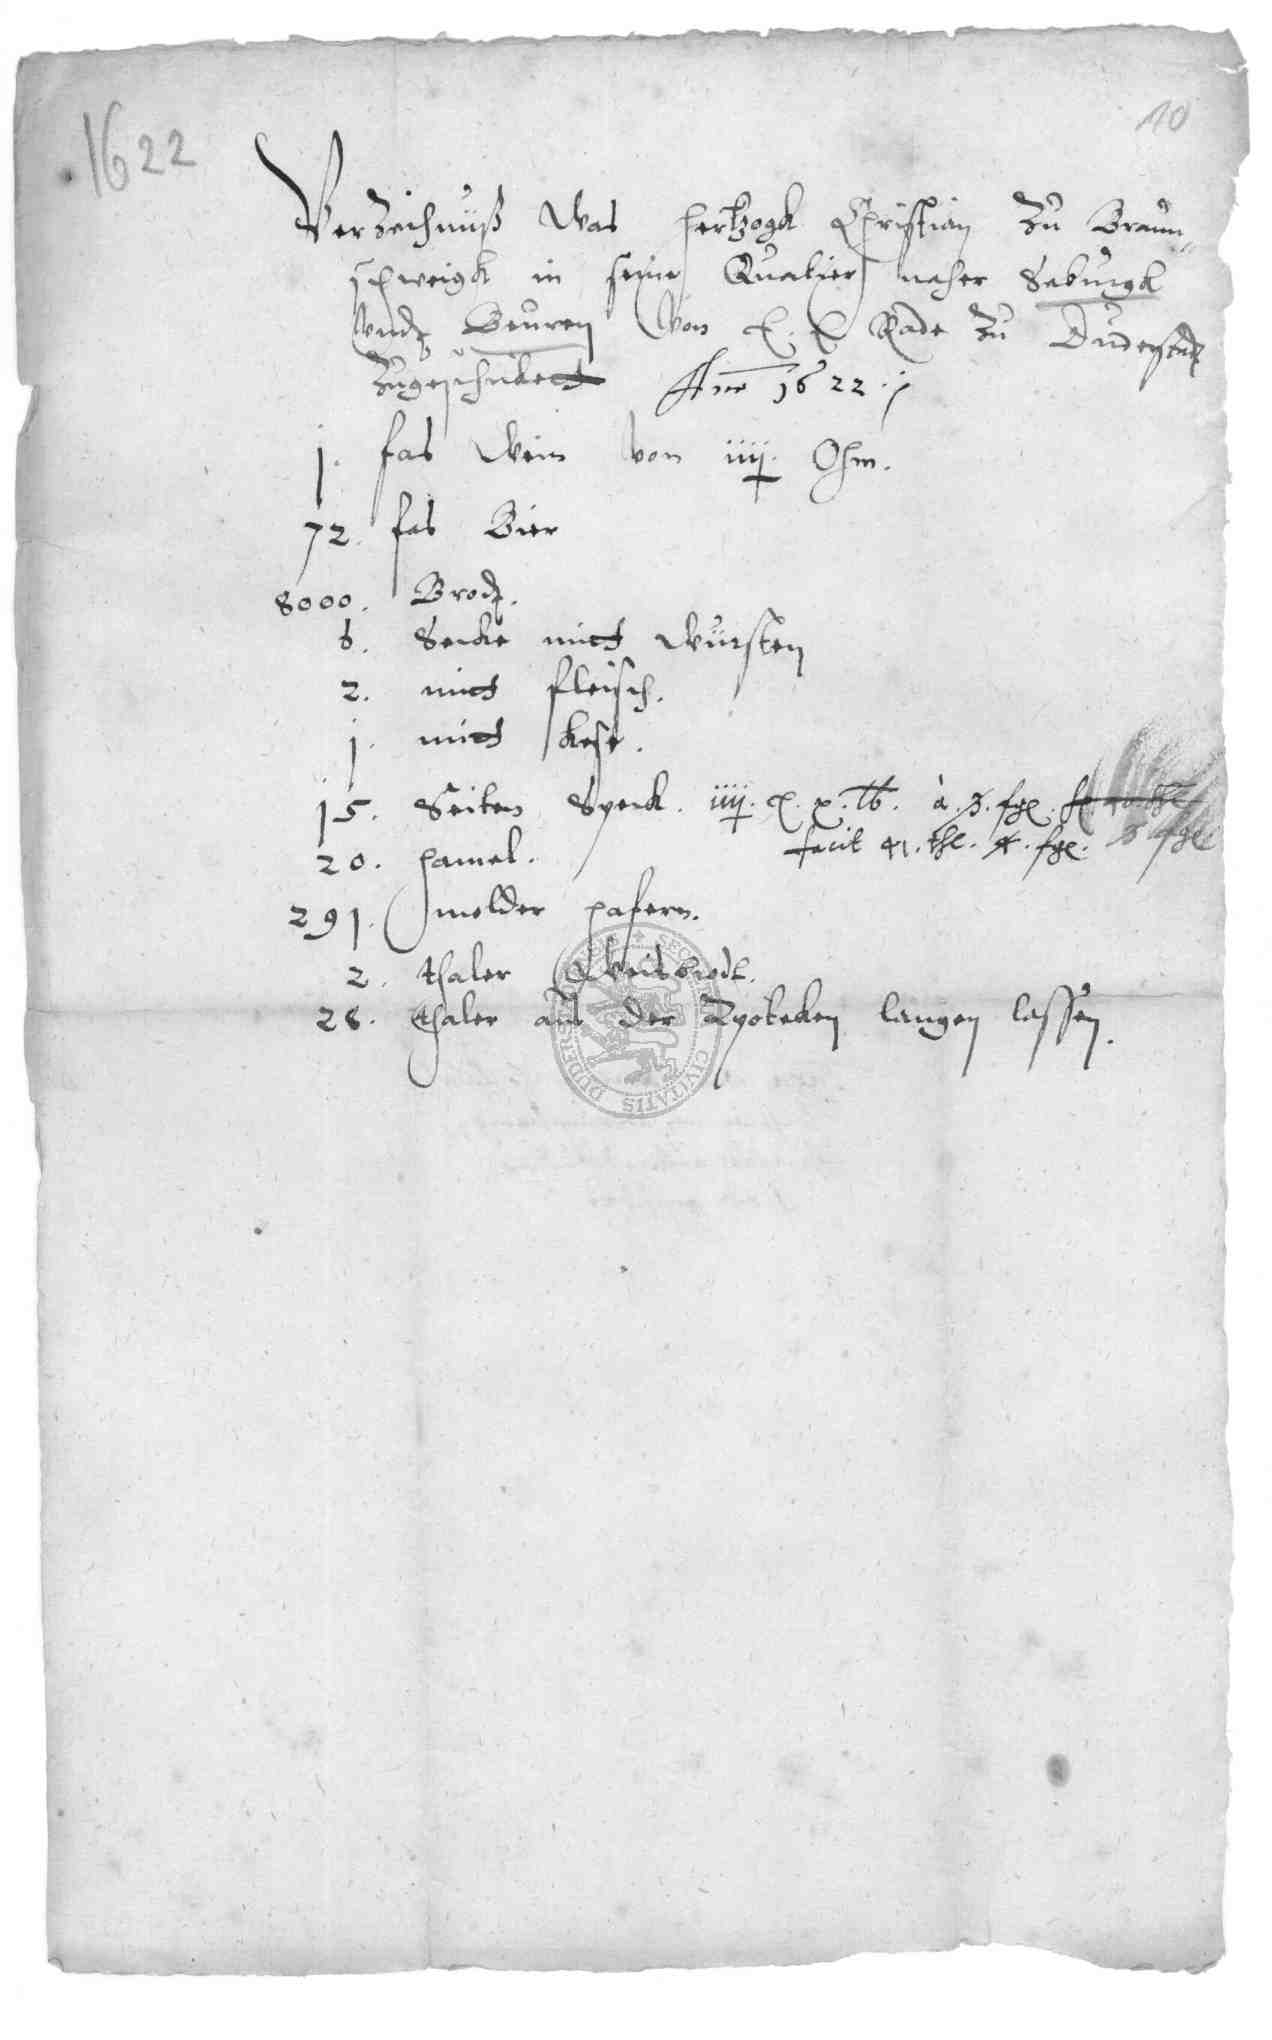 1622
10
Verzeichnuß was Hertzogk Christian zu Braun
schweigk in seine Quatier naher Seburgk
undt Beuren von E. E. Rade zu Duderstadt
zugeschicket Anno 1622.
j. fas Wein von iiij. Ohm.
72. fas Bier
8000. Brodt.
6. Secke mitt Würsten
2. mitt fleisch.
j. mitt kese.
15. Seiten Speck. iiij. C. x. lb. à. 3. fgl.
20. hamel. facit 41. thl. fgl.
291. molder hafern.
2. thaler Weisbrodt.
28. thaler aus der Apoteken langen lassen.
CIVITATIS DUDERS